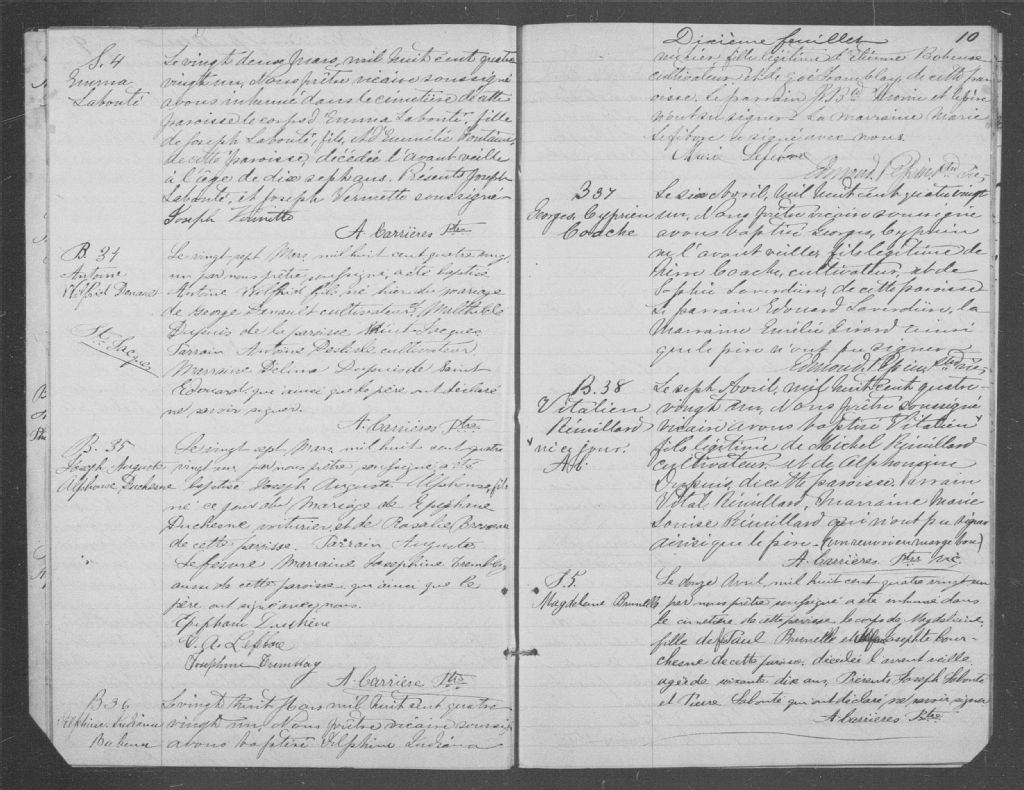 S. 4
Emma
Labonté
Le vingt deux Mars, mil huit cent quatre
vingt un, Nous prêtre vicaire soussigné
avons inhumé dans le cimetière de cette
paroisse le corps d'Emma Labonté, fille
de Joseph Labonté, fils, et d'Emmélie Fontaine,
de cette paroisse, décédée l'avant veille
à l'âge de dix sept ans. Présents Joseph
Labonté, et Joseph Vermette soussigné
Joseph Vermette
A. Carrières Ptre
B. 34
Antoine
Wilfrid Denault
St. Jacques
Le vingt sept Mars, mil huit cent quatre vingt
un par nous prêtre, soussigné, a été baptisé
Antoine Wilfrid fils, né hier du mariage
de George Denault cultivateur, Mathilde
Dupuis de la paroisse Saint Jacques
Parrain Antoine Delisle cultivateur
Marraine Delima Dupuis de Saint
Edouard qui ainsi que le père ont déclaré
ne savoir signer.
A. Carrières Ptre
B. 35
Joseph Auguste
Alphonse Duchesne
Le vingt sept Mars, mil huit cent quatre
vingt un, par nous prêtre, soussigné a été
baptisé Joseph Auguste Alphonse, fils
né ce jour du Mariage de Epiphane
Duchesne voiturier, et de Rosalie
de cette paroisse. Parrain Auguste
Lefebvre Marraine Josephine Tremblay
aussi de cette paroisse, qui ainsi que le
père ont signé avec nous.
Epiphane Duchêne
C. A. Lefbve
Josephine Trembay
A. Carrière Ptre
B. 36
Delphine Indiana
Babeux
Le vingt huit Mars mil huit cent quatre
vingt un, Nous prêtre vicaire soussigné
avons baptisé Delphine Indiana
Dixième feuillet
10
fille légitime d'Etienne Babeux
cultivateur et de Zoé Tremblay, de cette pa-
roisse. Le parrain J. Bte et le père
n'ont su signer. La marraine Marie
Lefebvre a signé avec nous.
Marie Lefebvre
Edmond Pépin Ptre Vic.
B 37
Georges Cyprien
Coache
Le six Avril, mil huit cent quatre vingt
un, Nous prêtre vicaire soussigné
avons baptisé George, Cyprien
né l'avant veille, fils légitime de
Rémi Coache, cultivateur, et de
Sophie Laverdière, de cette paroisse
Le parrain Edouard Laverdière, la
Marraine Emilie Girard ainsi
que le père n'ont pu signer
Edmond Pépin Ptre Vic.
B. 38
Vitalien
Rémillard
né ce jour.
A. C.
Le sept Avril, mil huit cent quatre-
vingt un, Nous prêtre soussigné
vicaire avons baptisé Vitalien
fils légitime de Michel Rémillard
cultivateur et de Alphonsine
Dupuis, de cette paroisse. Parrain
Vital Rémillard, Marraine Marie
Louise Rémillard qui n'ont pu signer
ainsi que le père. (un renvoi en marge bon)
A. Carrières Ptre Vic
S. 5.
Magdeleine Brunelle
Le douze Avril, mil huit cent quatre vingt un
par nous prêtre soussigné a été inhumé dans
le cimetière de cette paroisse le corps de Magdeleine,
fille de Paul Brunelle et Josephte
de cette paroisse, décédée l'avant veille
agée de soixante dix ans, Présents Joseph Labonté
et Pierre Labonté qui ont déclaré ne savoir signer
A. Carrières Ptre